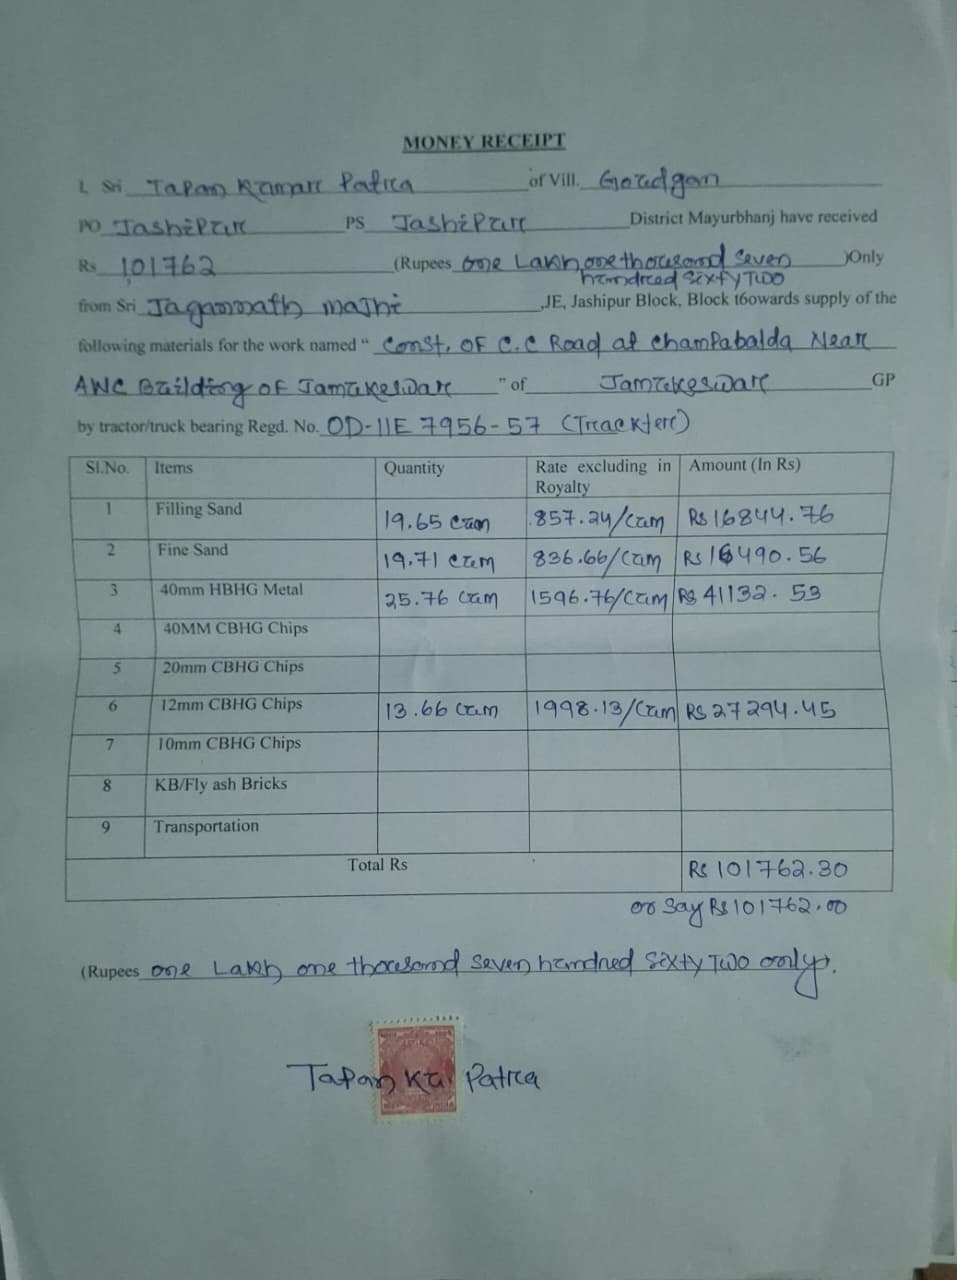 MONEY RECEIPT
I. Sri Tapan Kumar Patra of Vill. Goudgan
PO Jashipur PS Jashipur District Mayurbhanj have received
Rs 101762 (Rupees One Lakh one thousand seven )Only
hundred sixty Two
from Sri Jagannath Majhi ,JE, Jashipur Block, Block t6owards supply of the
following materials for the work named " Const. OF C.C Road at Champabalda Near
AWC Building of Jamukeswar " of Jamukeswar GP
by tractor/truck bearing Regd. No. OD-11E 7956-57 (Trackter)
Sl.No. Items Quantity Rate excluding in Royalty Amount (In Rs)
1 Filling Sand 19.65 Cum 857.24/Cum Rs 16844.76
2 Fine Sand 19.71 Cum 836.66/Cum Rs 16490.56
3 40mm HBHG Metal 25.76 Cum 1596.76/Cum Rs 41132.53
4 40MM CBHG Chips
5 20mm CBHG Chips
6 12mm CBHG Chips 13.66 Cum 1998.13/Cum Rs 27294.45
7 10mm CBHG Chips
8 KB/Fly ash Bricks
9 Transportation
Total Rs Rs 101762.30
or Say Rs 101762.00
(Rupees one Lakh one thousand seven hundred sixty Two only).
Tapan Ku Patra